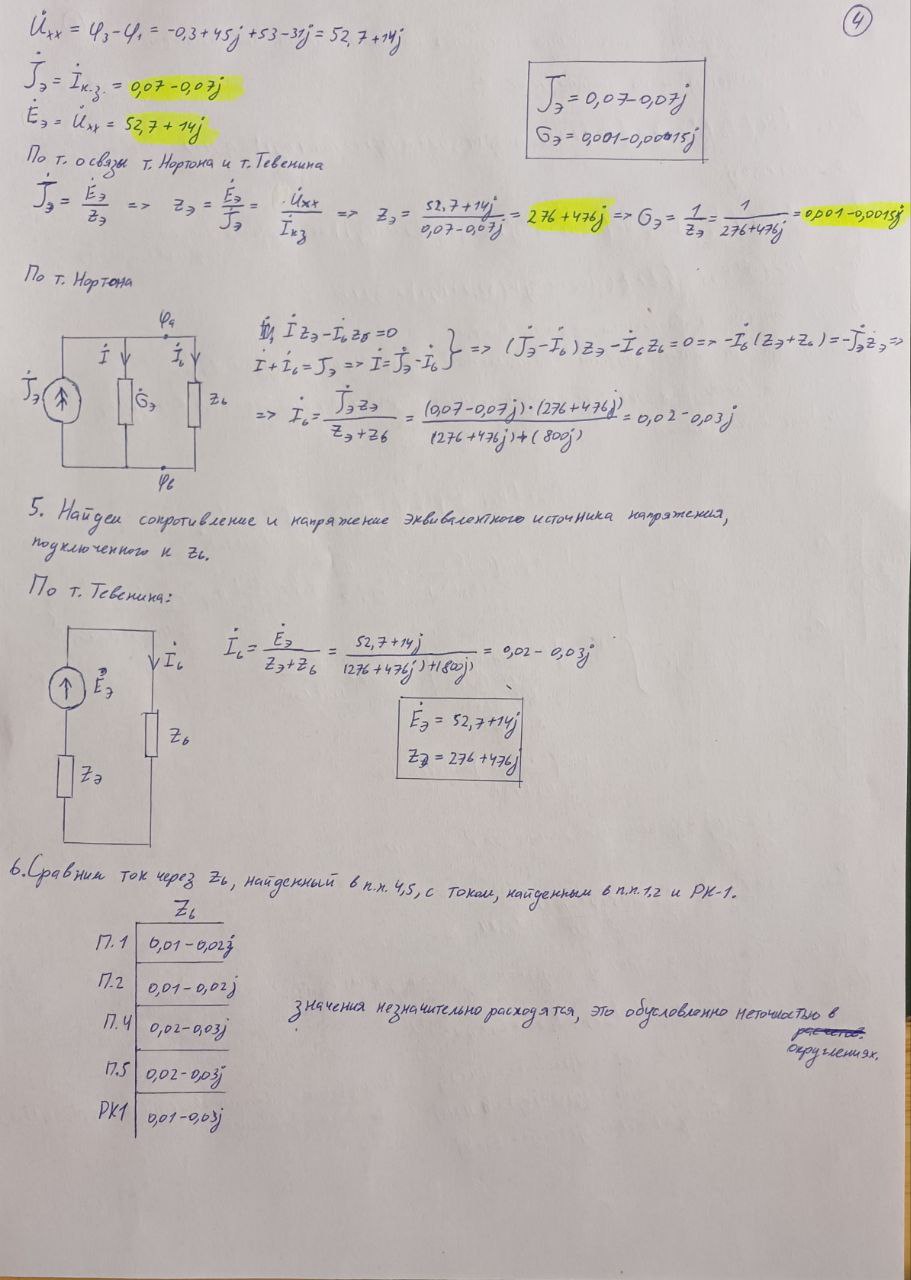 4
U̇хх = φ₃ - φ₁ = -0,3+45j +53-31j = 52,7+14j
J̇э = İк.з. = 0,07-0,07j
Ėэ = U̇хх = 52,7+14j
J̇э = 0,07-0,07j
Gэ = 0,001-0,00015j
По т. о связи т. Нортона и т. Тевенина
J̇э = Ėэ/zэ => zэ = Ėэ/J̇э = U̇хх/İкз => zэ = (52,7+14j)/(0,07-0,07j) = 276+476j => Gэ = 1/zэ = 1/(276+476j) = 0,001-0,0015j
По т. Нортона
φa
J̇э İ Ġэ İ₆ z₆
φb
İzэ - İ₆z₆ = 0
İ + İ₆ = Jэ => İ = J̇э - İ₆ } => (J̇э - İ₆)zэ - İ₆z₆ = 0 => -İ₆(zэ+z₆) = -J̇эzэ =>
=> İ₆ = J̇эzэ/(zэ+z₆) = (0,07-0,07j)·(276+476j)/((276+476j)+(800j)) = 0,02-0,03j
5. Найдем сопротивление и напряжение эквивалентного источника напряжения,
подключенного к z₆.
По т. Тевенина:
İ₆ = Ėэ/(zэ+z₆) = (52,7+14j)/((276+476j)+(800j)) = 0,02-0,03j
Ėэ İ₆ z₆ zэ
Ėэ = 52,7+14j
zэ = 276+476j
6. Сравним ток через z₆, найденный в п.п. 4,5, с током, найденным в п.п. 1,2 и РК-1.
Z₆
П.1 0,01-0,02j
П.2 0,01-0,02j
П.4 0,02-0,03j
П.5 0,02-0,03j
РК1 0,01-0,03j
значения незначительно расходятся, это обусловленно неточностью в
округлениях.